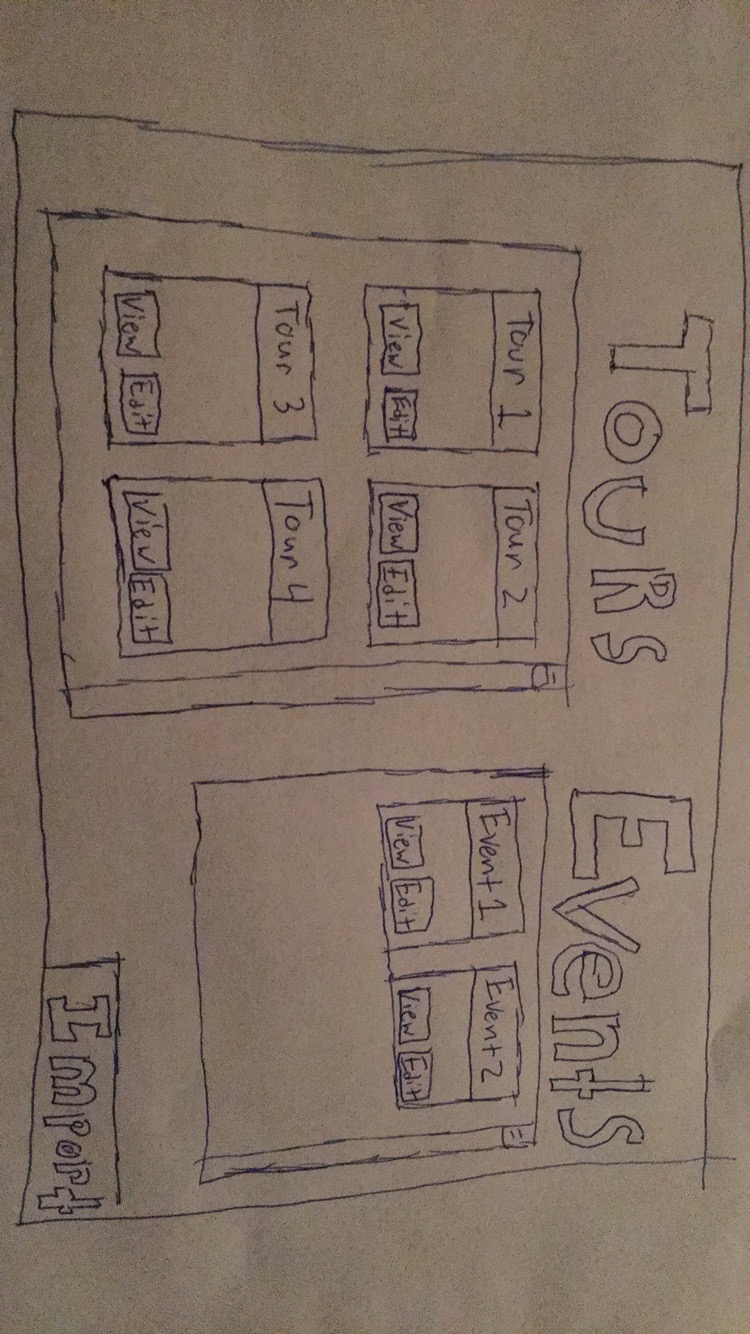 Tours
Tour 1
View Edit
Tour 2
View Edit
Tour 3
View Edit
Tour 4
View Edit
Events
Event 1
View Edit
Event 2
View Edit
Import